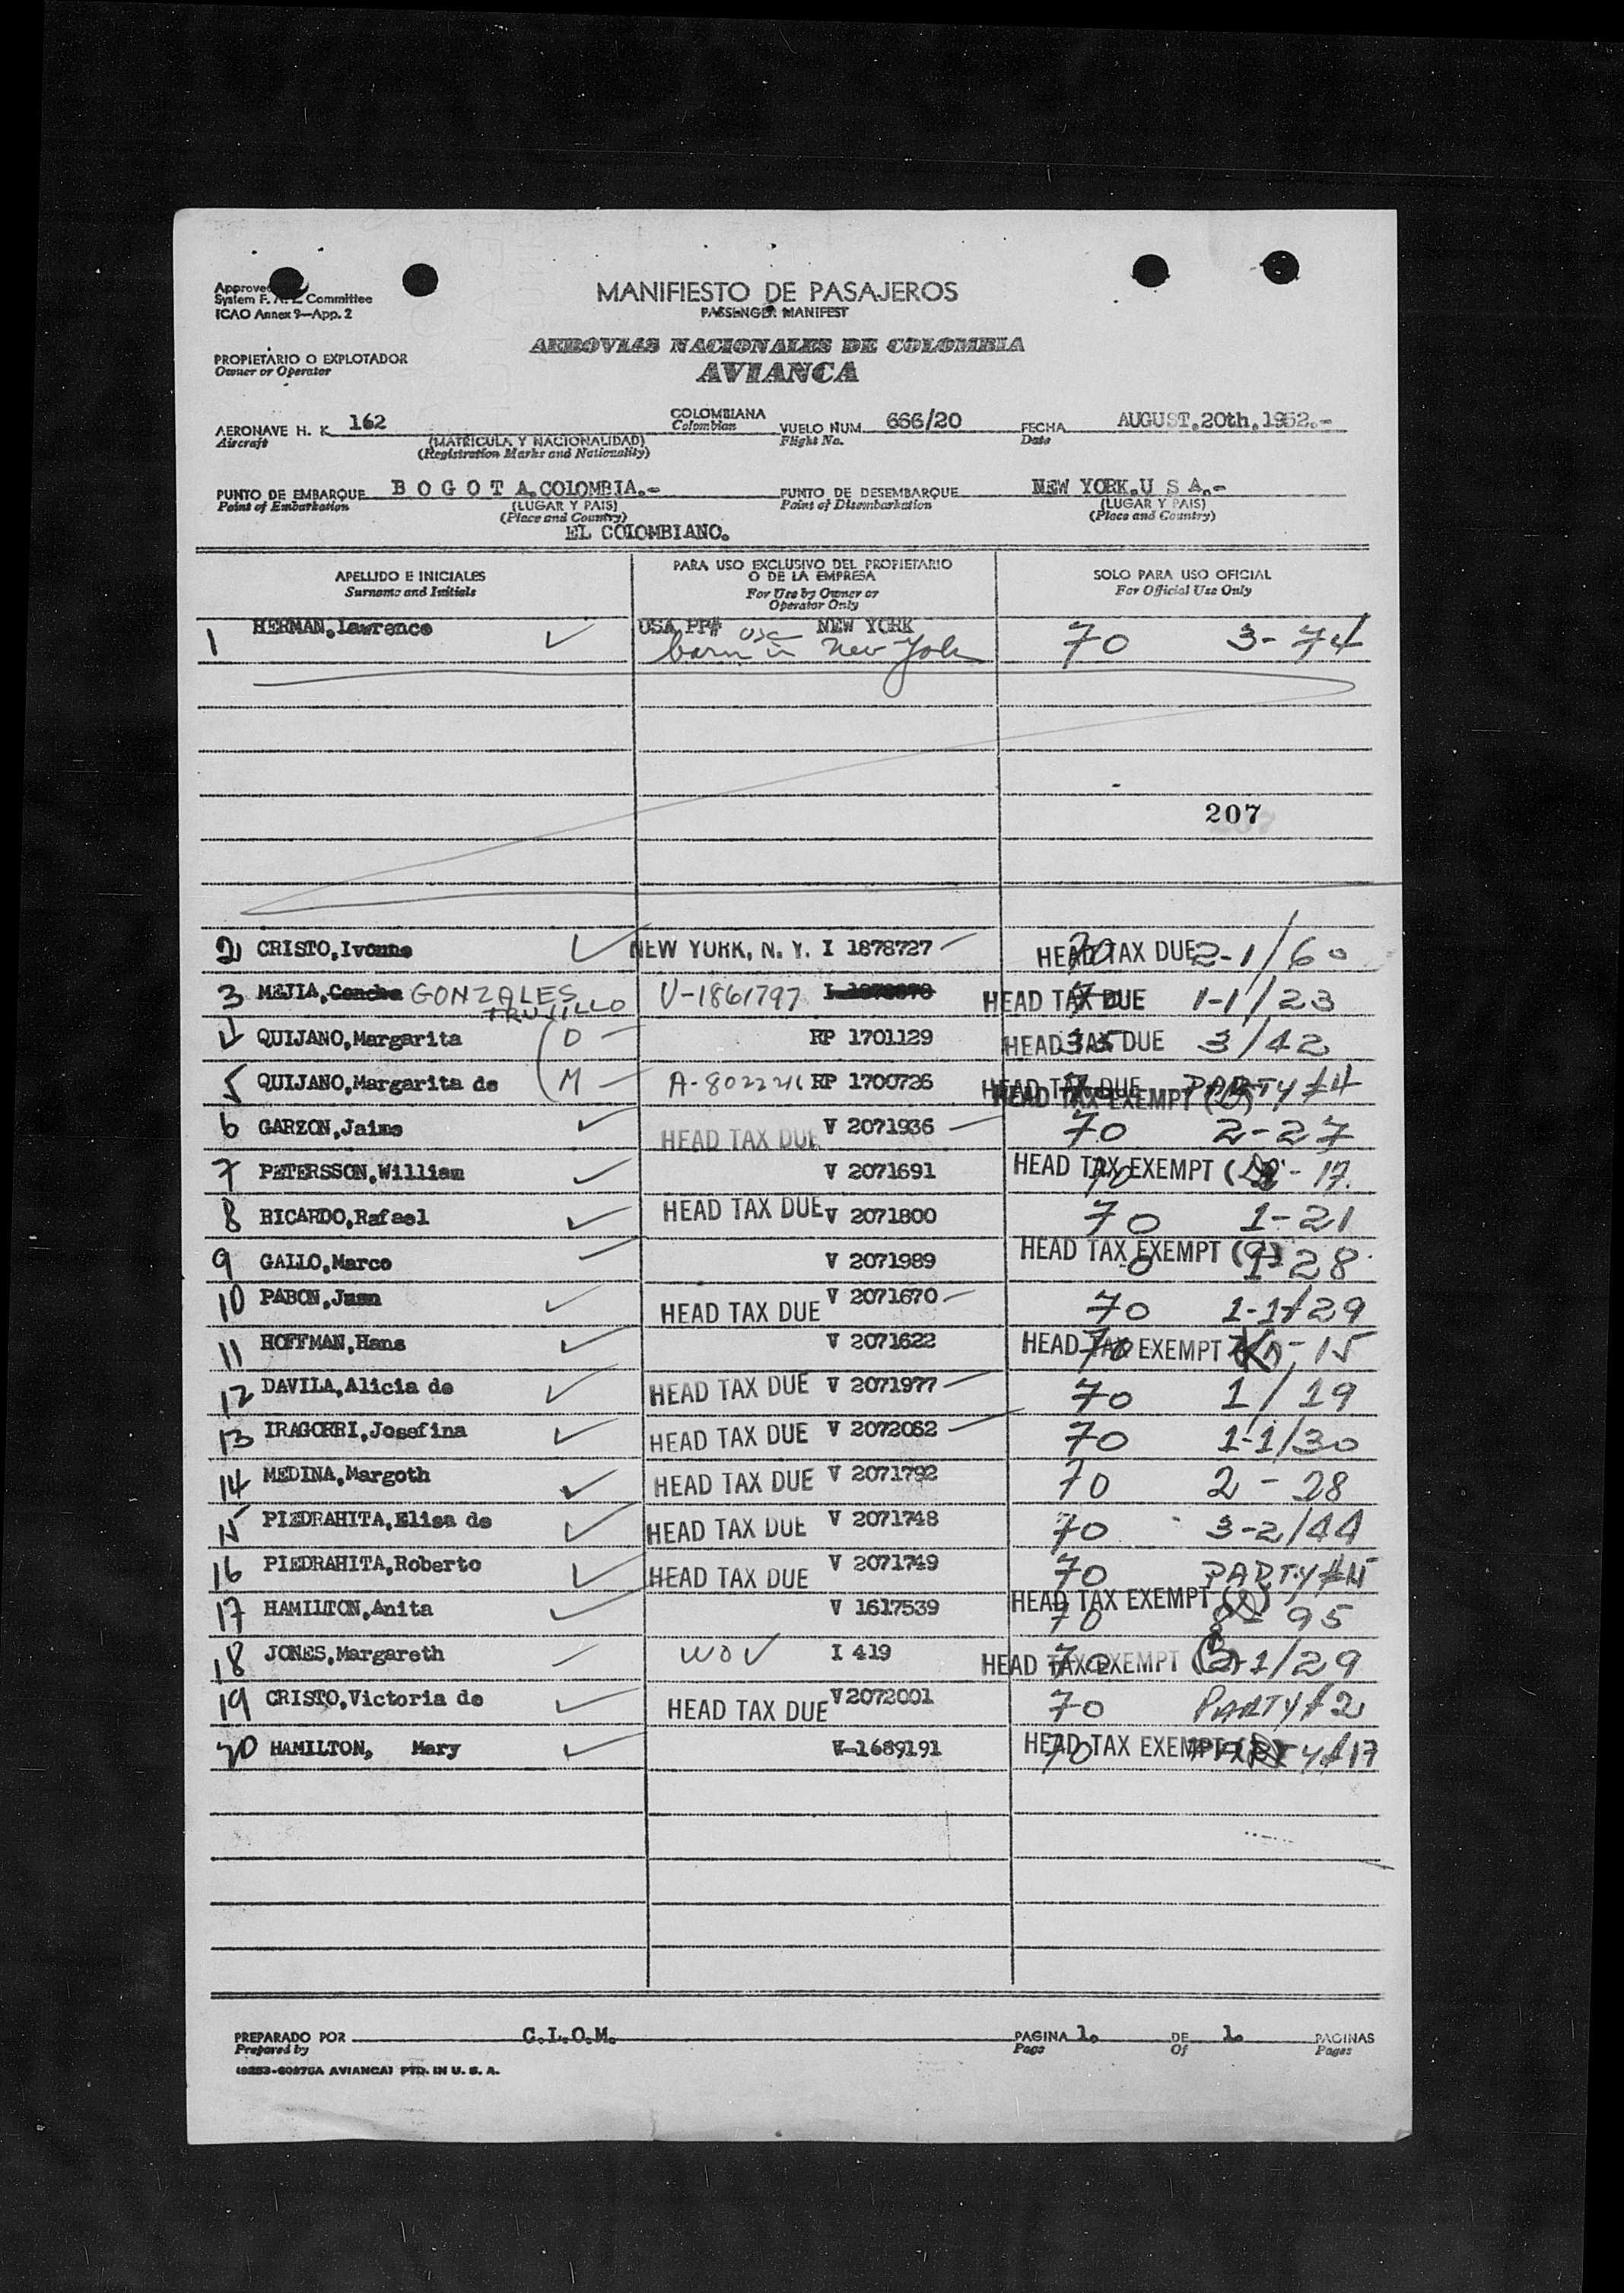 Approved
System F. A. L. Committee
ICAO Annex 9—App. 2
MANIFIESTO DE PASAJEROS
PASSENGER MANIFEST
PROPIETARIO O EXPLOTADOR
Owner or Operator
AEROVIAS NACIONALES DE COLOMBIA
AVIANCA
AERONAVE H. K 162 COLOMBIANA VUELO NUM. 666/20 FECHA AUGUST.20th.1952.-
Aircraft (MATRICULA Y NACIONALIDAD) Colombian Flight No. Date
(Registration Marks and Nationality)
PUNTO DE EMBARQUE B O G O T A.COLOMBIA.- PUNTO DE DESEMBARQUE NEW YORK.U S A.-
Point of Embarkation (LUGAR Y PAIS) Point of Disembarkation (LUGAR Y PAIS)
(Place and Country) (Place and Country)
EL COLOMBIANO.
APELLIDO E INICIALES PARA USO EXCLUSIVO DEL PROPIETARIO SOLO PARA USO OFICIAL
Surname and Initials O DE LA EMPRESA For Official Use Only
For Use by Owner or
Operator Only
1 HERMAN,Lawrence USA PP# USC NEW YORK 70 3-74
born in New York
207
2 CRISTO,Ivonne NEW YORK, N. Y. I 1878727 HEAD TAX DUE 70 2-1/60
3 MEJIA,Concha GONZALES TRUJILLO V-1861797 HEAD TAX DUE 1-1/23
4 QUIJANO,Margarita (D RP 1701129 HEAD TAX DUE 35 3/42
5 QUIJANO,Margarita de (M RP 1700726 HEAD TAX DUE PARTY #4
HEAD TAX EXEMPT
6 GARZON,Jaime HEAD TAX DUE V 2071936 70 2-27
7 PETERSSON,William V 2071691 HEAD TAX EXEMPT 70 - 17
8 RICARDO,Rafael HEAD TAX DUE V 2071800 70 1-21
9 GALLO,Marco V 2071989 HEAD TAX EXEMPT 28
10 PABON,Juan HEAD TAX DUE V 2071670 70 1-1/29
11 HOFFMAN,Hans V 2071622 HEAD TAX EXEMPT 70 - 15
12 DAVILA,Alicia de HEAD TAX DUE V 2071977 70 1/19
13 IRAGORRI,Josefina HEAD TAX DUE V 2072062 70 1-1/30
14 MEDINA,Margoth HEAD TAX DUE V 2071792 70 2-28
15 PIEDRAHITA,Elisa de HEAD TAX DUE V 2071748 70 3-2/44
16 PIEDRAHITA,Roberto HEAD TAX DUE V 2071749 70 PARTY #15
17 HAMILTON,Anita V 1617539 HEAD TAX EXEMPT 70 95
18 JONES,Margareth WOV I 419 HEAD TAX EXEMPT 70 2-1/29
19 CRISTO,Victoria de HEAD TAX DUE V2072001 70 PARTY #2
20 HAMILTON, Mary V-1689191 HEAD TAX EXEMPT 70 PARTY #17
PREPARADO POR C.L.O.M. PAGINA 1. DE 1. PAGINAS
Prepared by Page Of Pages
AVIANCA) PTD. IN U. S. A.